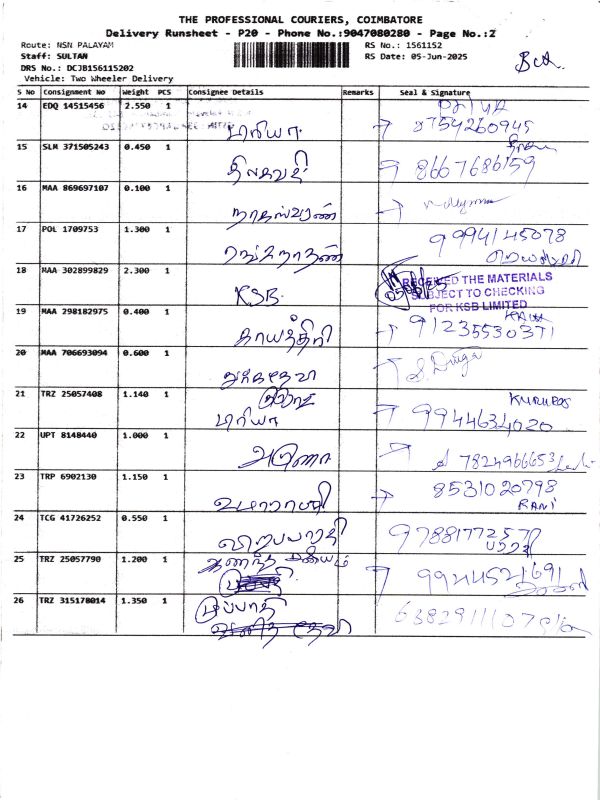 THE PROFESSIONAL COURIERS, COIMBATORE
Delivery Runsheet - P20 - Phone No.:9047080280 - Page No.:2
Route: NSN PALAYAM
RS No.: 1561152
Staff: SULTAN
RS Date: 05-Jun-2025
DRS No.: DCJB156115202
Vehicle: Two Wheeler Delivery
S No Consignment No Weight PCS Consignee Details Remarks Seal & Signature
14 EDQ 14515456 2.550 1
பிரியா 8754260945
15 SLM 371505243 0.450 1
திலகவதி 8667686159
16 MAA 869697107 0.100 1
17 POL 1709753 1.300 1
ரெங்கநாதன் 9994145078
18 MAA 302899829 2.300 1
KSB
RECEIVED THE MATERIALS
SUBJECT TO CHECKING
FOR KSB LIMITED
19 MAA 298182975 0.400 1
காயத்திரி 91235530371
20 MAA 706693094 0.600 1
S. Durga
21 TRZ 25057408 1.140 1
பிரியா 9944634020
22 UPT 8148440 1.000 1
அருணா 7824966653
23 TRP 6902130 1.150 1
உமாராணி 8531020798
RANI
24 TCG 41726252 0.550 1
9788177257
25 TRZ 25057790 1.200 1
9944521691
26 TRZ 315178014 1.350 1
6382911107